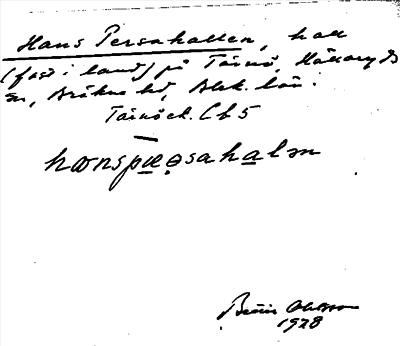 Hans Persahallen, hall
(fast i land) på Tärnö, Hällaryds
sn, Bräkne hd, Blek. län.
Tärnö ek. Cb5
hanspæɘsahalən
1928